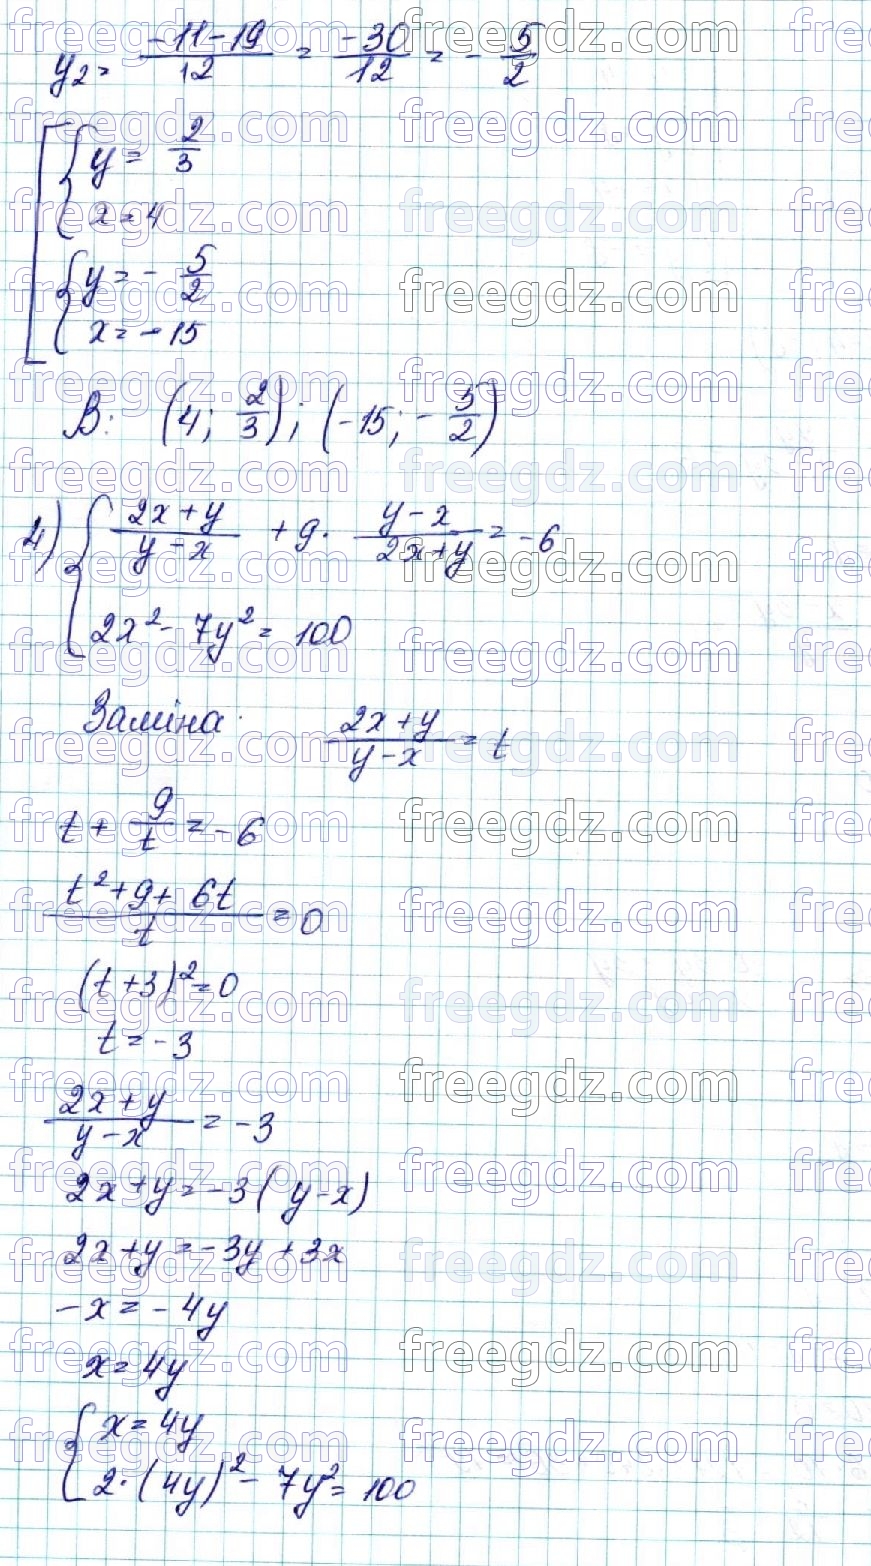 y₂ = (-11-19)/12 = -30/12 = - 5/2
[ { y = 2/3
x = 4
{ y = - 5/2
x = -15
В: (4; 2/3); (-15; - 5/2)
4) { (2x+y)/(y-x) + 9 · (y-x)/(2x+y) = -6
2x² - 7y² = 100
Заміна: (2x+y)/(y-x) = t
t + 9/t = -6
(t²+9+6t)/t = 0
(t+3)² = 0
t = -3
(2x+y)/(y-x) = -3
2x+y = -3(y-x)
2x+y = -3y+3x
-x = -4y
x = 4y
{ x = 4y
2·(4y)² - 7y² = 100
freegdz.com